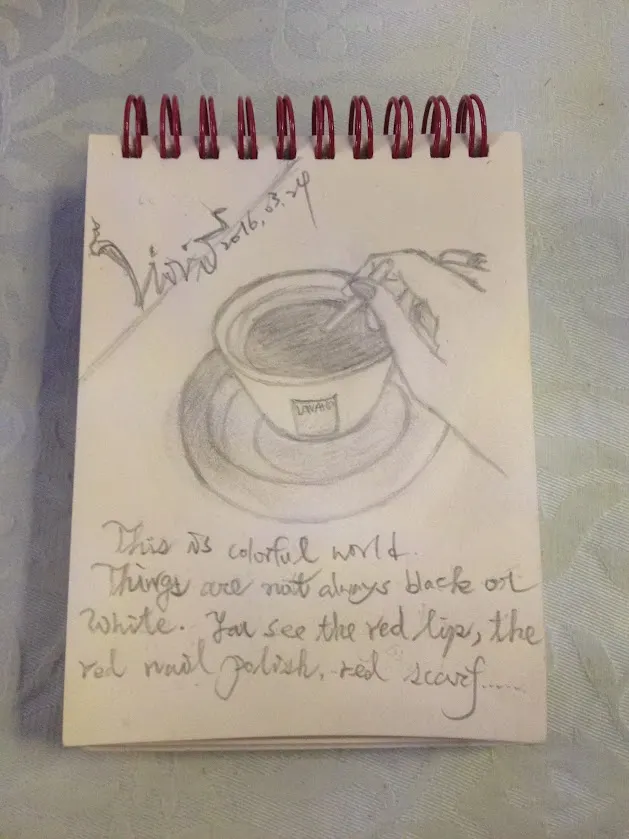 2016.03.24
LAVAZZA
This is colorful world.
Things are not always black or
white. You see the red lip, the
red nail polish, red scarf......